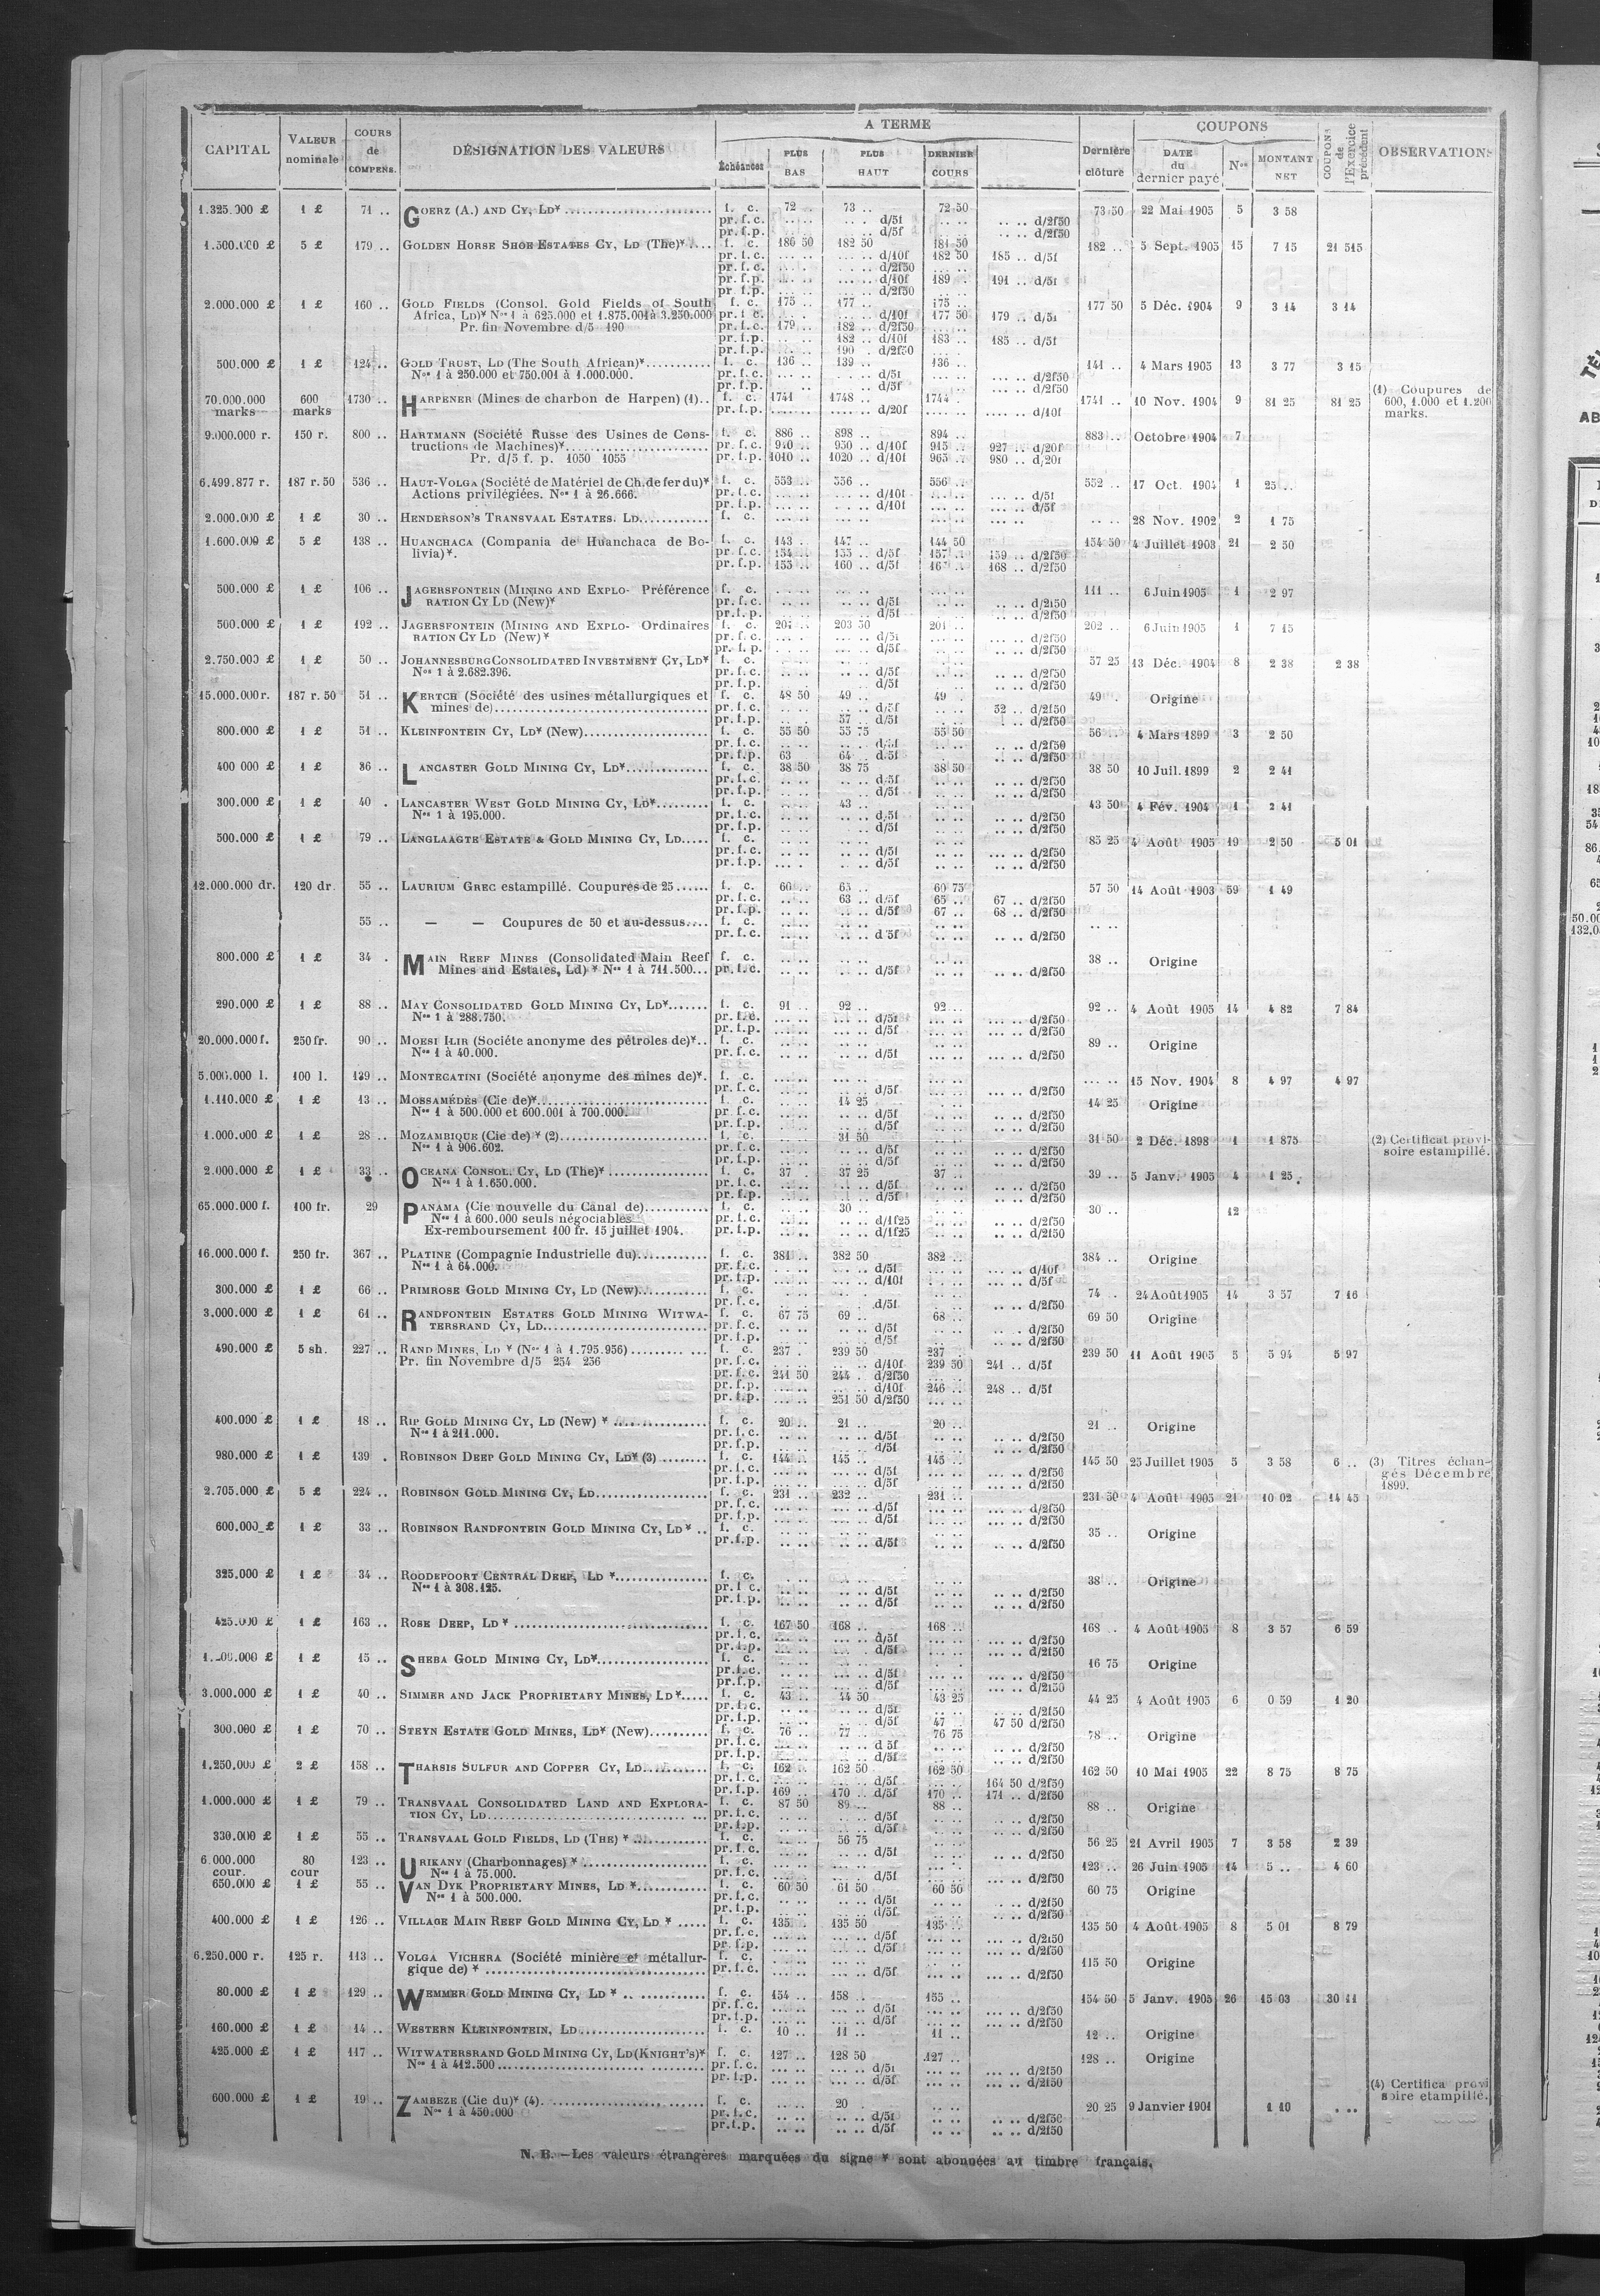 CAPITAL VALEUR nominale COURS de COMPENS. DÉSIGNATION DES VALEURS A TERME Échéances PLUS BAS PLUS HAUT DERNIER COURS Dernière clôture COUPONS DATE du dernier payé Nos MONTANT NET COUPONS de l'Exercice précédent OBSERVATIONS
1.325.000 £ 1 £ 71 .. GOERZ (A.) AND CY, LD* f. c. 72 .. 73 .. 72 50 73 50 22 Mai 1905 5 3 58
pr. f. c. d/5f d/2f50
pr. f. p. d/5f d/2f50
1.500.000 £ 5 £ 179 .. GOLDEN HORSE SHOE ESTATES CY, LD (The)* f. c. 180 50 182 50 181 50 182 .. 5 Sept. 1905 15 7 15 21 515
pr. f. c. d/10f 182 50 185 .. d/5f
pr. f. c. d/2f50
pr. f. p. d/10f 189 .. 191 .. d/5f
pr. f. p. d/2f50
2.000.000 £ 1 £ 160 .. GOLD FIELDS (Consol. Gold Fields of South f. c. 175 .. 177 .. 175 .. 177 50 5 Déc. 1904 9 3 14 3 14
Africa, LD)* Nos 1 à 625.000 et 1.875.001 à 3.250.000 pr. f. c. d/10f 177 50 179 .. d/5f
Pr. fin Novembre d/5 190 pr. f. c. 179 .. 182 .. d/2f50
pr. f. p. 182 .. d/10f 183 .. 185 .. d/5f
pr. f. p. 190 .. d/2f50
500.000 £ 1 £ 124 .. GOLD TRUST, LD (The South African)* f. c. 136 .. 139 .. 136 .. 141 .. 4 Mars 1905 13 3 77 3 15
Nos 1 à 250.000 et 750.001 à 1.000.000. pr. f. c. d/5f d/2f50
pr. f. p. d/5f d/2f50
70.000.000 marks 600 marks 1730 .. HARPENER (Mines de charbon de Harpen) (1).. f. c. 1741 1748 .. 1744 .. 1741 .. 10 Nov. 1904 9 81 25 81 25 (1) Coupures de 600, 1.000 et 1.200 marks.
pr. f. p. d/20f d/10f
9.000.000 r. 150 r. 800 .. HARTMANN (Société Russe des Usines de Cons- f. c. 886 .. 898 .. 894 .. 883 .. Octobre 1904 7
tructions de Machines)* pr. f. c. 910 .. 930 .. d/10f 915 .. 927 .. d/20f
Pr. d/5 f. p. 1050 1055 pr. f. p. 1010 .. 1020 .. d/10f 965 .. 980 .. d/20f
6.499.877 r. 187 r. 50 536 .. HAUT-VOLGA (Société de Matériel de Ch. de fer du)* f. c. 553 .. 556 .. 556 .. 552 .. 17 Oct. 1904 1 25 ..
Actions privilégiées. Nos 1 à 26.666. pr. f. c. d/10f d/5f
pr. f. p. d/10f d/5f
2.000.000 £ 1 £ 30 .. HENDERSON'S TRANSVAAL ESTATES. LD f. c. 28 Nov. 1902 2 1 75
1.600.000 £ 5 £ 138 .. HUANCHACA (Compania de Huanchaca de Bo- f. c. 143 .. 147 .. 144 50 154 50 4 Juillet 1903 21 2 50
livia)*. pr. f. c. 154 .. 155 .. d/5f 157 .. 159 .. d/2f50
pr. f. p. 155 .. 160 .. d/5f 168 .. d/2f50
500.000 £ 1 £ 106 .. JAGERSFONTEIN (MINING AND EXPLO- Préférence f. c. 111 .. 6 Juin 1905 1 2 97
RATION CY LD (New)* pr. f. c. d/5f d/2f50
pr. f. p. d/5f d/2f50
500.000 £ 1 £ 192 .. JAGERSFONTEIN (MINING AND EXPLO- Ordinaires f. c. 201 .. 203 50 201 .. 202 .. 6 Juin 1905 1 7 15
RATION CY LD (New)* pr. f. c. d/5f d/2f50
pr. f. p. d/5f d/2f50
2.750.000 £ 1 £ 50 .. JOHANNESBURG CONSOLIDATED INVESTMENT CY, LD* f. c. 57 25 13 Déc. 1904 8 2 38 2 38
Nos 1 à 2.682.396. pr. f. c. d/5f d/2f50
pr. f. p. d/5f d/2f50
15.000.000 r. 187 r. 50 51 .. KERTCH (Société des usines métallurgiques et f. c. 48 50 49 .. 49 .. 49 .. Origine
mines de) pr. f. c. d/5f 52 .. d/2f50
pr. f. p. 57 .. d/5f d/2f50
800.000 £ 1 £ 51 .. KLEINFONTEIN CY, LD* (New) f. c. 55 50 55 75 55 50 56 .. 4 Mars 1899 3 2 50
pr. f. c. d/5f d/2f50
pr. f. p. 63 64 .. d/5f d/2f50
400 000 £ 1 £ 36 .. LANCASTER GOLD MINING CY, LD* f. c. 38 50 38 75 38 50 38 50 10 Juil. 1899 2 2 41
pr. f. c. d/5f d/2f50
pr. f. p. d/5f d/2f50
300.000 £ 1 £ 40 . LANCASTER WEST GOLD MINING CY, LD* f. c. 43 .. 43 50 4 Fév. 1904 1 2 41
Nos 1 à 195.000. pr. f. c. d/5f d/2f50
pr. f. p. d/5f d/2f50
500.000 £ 1 £ 79 .. LANGLAAGTE ESTATE & GOLD MINING CY, LD f. c. 85 25 4 Août 1905 19 2 50 5 01
pr. f. c. d/5f d/2f50
pr. f. p. d/5f d/2f50
12.000.000 dr. 120 dr. 55 .. LAURIUM GREC estampillé. Coupures de 25 f. c. 60 .. 65 .. 60 75 57 50 14 Août 1903 59 1 49
pr. f. c. 63 .. d/5f 65 .. 67 .. d/2f50
pr. f. p. d/5f 67 .. 68 .. d/2f50
55 .. — — Coupures de 50 et au-dessus f. c.
pr. f. c. d/5f d/2f50
800.000 £ 1 £ 34 . MAIN REEF MINES (Consolidated Main Reef f. c. 38 .. Origine
Mines and Estates, Ld) * Nos 1 à 711.500 pr. f. c. d/5f d/2f50
290.000 £ 1 £ 88 .. MAY CONSOLIDATED GOLD MINING CY, LD* f. c. 91 .. 92 .. 92 .. 92 .. 4 Août 1905 14 4 82 7 84
Nos 1 à 288.750. pr. f. c. d/5f d/2f50
pr. f. p. d/5f d/2f50
20.000.000 f. 250 fr. 90 .. MOESI ILIR (Société anonyme des pétroles de)* f. c. 89 .. Origine
Nos 1 à 40.000. pr. f. c. d/5f d/2f50
5.000.000 l. 100 l. 139 .. MONTECATINI (Société anonyme des mines de)*. f. c. 15 Nov. 1904 8 4 97 4 97
pr. f. c. d/5f d/2f50
1.110.000 £ 1 £ 13 .. MOSSAMÉDÈS (Cie de)* f. c. 14 25 14 25 Origine
Nos 1 à 500.000 et 600.001 à 700.000. pr. f. c. d/5f d/2f50
pr. f. p. d/5f d/2f50
1.000.000 £ 1 £ 28 .. MOZAMBIQUE (Cie de) * (2) f. c. 31 50 31 50 2 Déc. 1898 1 1 875 (2) Certificat provi-soire estampillé.
Nos 1 à 906.602. pr. f. c. d/5f d/2f50
pr. f. p. d/5f d/2f50
2.000.000 £ 1 £ 33 .. OCEANA CONSOL. CY, LD (The)* f. c. 37 .. 37 25 37 .. 39 .. 5 Janv. 1905 4 1 25
Nos 1 à 1.650.000. pr. f. c. d/5f d/2f50
pr. f. p. d/5f d/2f50
65.000.000 f. 100 fr. 29 PANAMA (Cie nouvelle du Canal de) f. c. 30 .. 30 .. 12
Nos 1 à 600.000 seuls négociables pr. f. c. d/1f25 d/2f50
Ex-remboursement 100 fr. 15 juillet 1904. pr. f. p. d/1f25 d/2f50
16.000.000 f. 250 fr. 367 .. PLATINE (Compagnie Industrielle du) f. c. 381 .. 382 50 382 .. 384 .. Origine
Nos 1 à 64.000. pr. f. c. d/5f d/10f
pr. f. p. d/10f d/5f
300.000 £ 1 £ 66 .. PRIMROSE GOLD MINING CY, LD (New) f. c. 74 .. 24 Août 1905 14 3 57 7 16
pr. f. c. d/5f d/2f50
3.000.000 £ 1 £ 61 .. RANDFONTEIN ESTATES GOLD MINING WITWA- f. c. 67 75 69 .. 68 .. 69 50 Origine
TERSRAND CY, LD pr. f. c. d/5f d/2f50
pr. f. p. d/5f d/2f50
490.000 £ 5 sh. 227 .. RAND MINES, LD * (Nos 1 à 1.795.956) f. c. 237 .. 239 50 237 .. 239 50 11 Août 1905 5 5 94 5 97
Pr. fin Novembre d/5 254 256 pr. f. c. d/10f 239 50 241 .. d/5f
pr. f. c. 241 50 244 . d/2f50
pr. f. p. d/10f 246 .. 248 .. d/5f
pr. f. p. 251 50 d/2f50
400.000 £ 1 £ 18 .. RIP GOLD MINING CY, LD (New) * f. c. 20 .. 21 .. 20 .. 21 .. Origine
Nos 1 à 211.000. pr. f. c. d/5f d/2f50
pr. f. p. d/5f d/2f50
980.000 £ 1 £ 139 . ROBINSON DEEP GOLD MINING CY, LD* (3) f. c. 144 .. 145 .. 145 .. 145 50 25 Juillet 1905 5 3 58 6 .. (3) Titres échan-gés Décembre 1899.
pr. f. c. d/5f d/2f50
pr. f. p. d/5f d/2f50
2.705.000 5 £ 224 .. ROBINSON GOLD MINING CY, LD f. c. 231 .. 232 .. 231 .. 231 50 4 Août 1905 21 10 02 14 45
pr. f. c. d/5f d/2f50
pr. f. p. d/5f d/2f50
600.000 £ 1 £ 33 .. ROBINSON RANDFONTEIN GOLD MINING CY, LD* .. f. c. 35 .. Origine
pr. f. p. d/5f d/2f50
325.000 £ 1 £ 34 .. ROODEPOORT CENTRAL DEEP, LD * f. c. 38 .. Origine
Nos 1 à 308.125. pr. f. c. d/5f d/2f50
pr. f. p. d/5f d/2f50
425.000 £ 1 £ 163 .. ROSE DEEP, LD * f. c. 167 50 168 .. 168 .. 168 .. 4 Août 1905 8 3 57 6 59
pr. f. c. d/5f d/2f50
pr. f. p. d/5f d/2f50
1 £ 15 .. SHEBA GOLD MINING CY, LD* f. c. 16 75 Origine
pr. f. c. d/5f d/2f50
pr. f. p. d/5f d/2f50
3.000.000 £ 1 £ 40 .. SIMMER AND JACK PROPRIETARY MINES, LD* f. c. 43 .. 44 50 43 25 44 25 4 Août 1905 6 0 59 1 20
pr. f. c. d/5f d/2f50
pr. f. p. d/5f 47 47 50 d/2f50
300.000 £ 1 £ 70 .. STEYN ESTATE GOLD MINES, LD* (New) f. c. 76 .. 77 .. 76 75 78 .. Origine
pr. f. c. d 5f d/2f50
pr. f. p. d/5f d/2f50
1.250.000 £ 2 £ 158 .. THARSIS SULFUR AND COPPER CY, LD f. c. 162 162 50 162 50 162 50 10 Mai 1905 22 8 75 8 75
pr. f. c. d/5f 164 50 d/2f50
pr. f. p. 169 .. 170 .. d/5f 170 .. 171 .. d/2f50
1.000.000 £ 1 £ 79 .. TRANSVAAL CONSOLIDATED LAND AND EXPLORA- f. c. 87 50 89 .. 88 .. 88 .. Origine
TION CY, LD pr. f. c. d/5f d/2f50
pr. f. p. d/5f d/2f50
330.000 £ 1 £ 55 .. TRANSVAAL GOLD FIELDS, LD (THE) * f. c. 56 75 56 25 21 Avril 1905 7 3 58 2 39
pr. f. c. d/5f d/2f50
6.000.000 cour. 80 cour 123 .. URIKANY (Charbonnages) * f. c. 123 .. 26 Juin 1905 14 5 .. 4 60
Nos 1 à 75.000. pr. f. c. d/5f d/2f50
650.000 £ 1 £ 55 .. VAN DYK PROPRIETARY MINES, LD * f. c. 60 50 61 50 60 50 60 75 Origine
Nos 1 à 500.000. pr. f. c. d/5f d/2f50
pr. f. p. d/5f d/2f50
400.000 £ 1 £ 126 .. VILLAGE MAIN REEF GOLD MINING CY, LD * f. c. 135 .. 135 50 135 .. 135 50 4 Août 1905 8 5 01 8 79
pr. f. c. d/5f d/2f50
pr. f. p. d/5f d/2f50
6.250.000 r. 125 r. 113 .. VOLGA VICHERA (Société minière et métallur- f. c. 115 50 Origine
gique de) * pr. f. c. d/5f d/2f50
80.000 £ 1 £ 129 .. WEMMER GOLD MINING CY, LD * f. c. 154 .. 158 .. 155 .. 154 50 5 Janv. 1905 26 15 03 30 11
pr. f. c. d/5f d/2f50
pr. f. p. d/5f d/2f50
160.000 £ 1 £ 14 .. WESTERN KLEINFONTEIN, LD f. c. 10 .. 11 .. 11 .. 12 .. Origine
425.000 £ 1 £ 117 .. WITWATERSRAND GOLD MINING CY, LD (KNIGHT'S)* f. c. 127 .. 128 50 127 .. 128 .. Origine
Nos 1 à 412.500 pr. f. c. d/5f d/2f50
pr. f. p. d/5f d/2f50
600.000 £ 1 £ 19 .. ZAMBÈZE (Cie du)* (4). f. c. 20 20 25 9 Janvier 1901 1 10 (4) Certifica provi soire etampillé.
Nos 1 à 450.000 pr. f. c. d/5f d/2f50
pr. f. p. d/5f d/2f50
N. B. — Les valeurs étrangères marquées du signe * sont abonnées au timbre français.